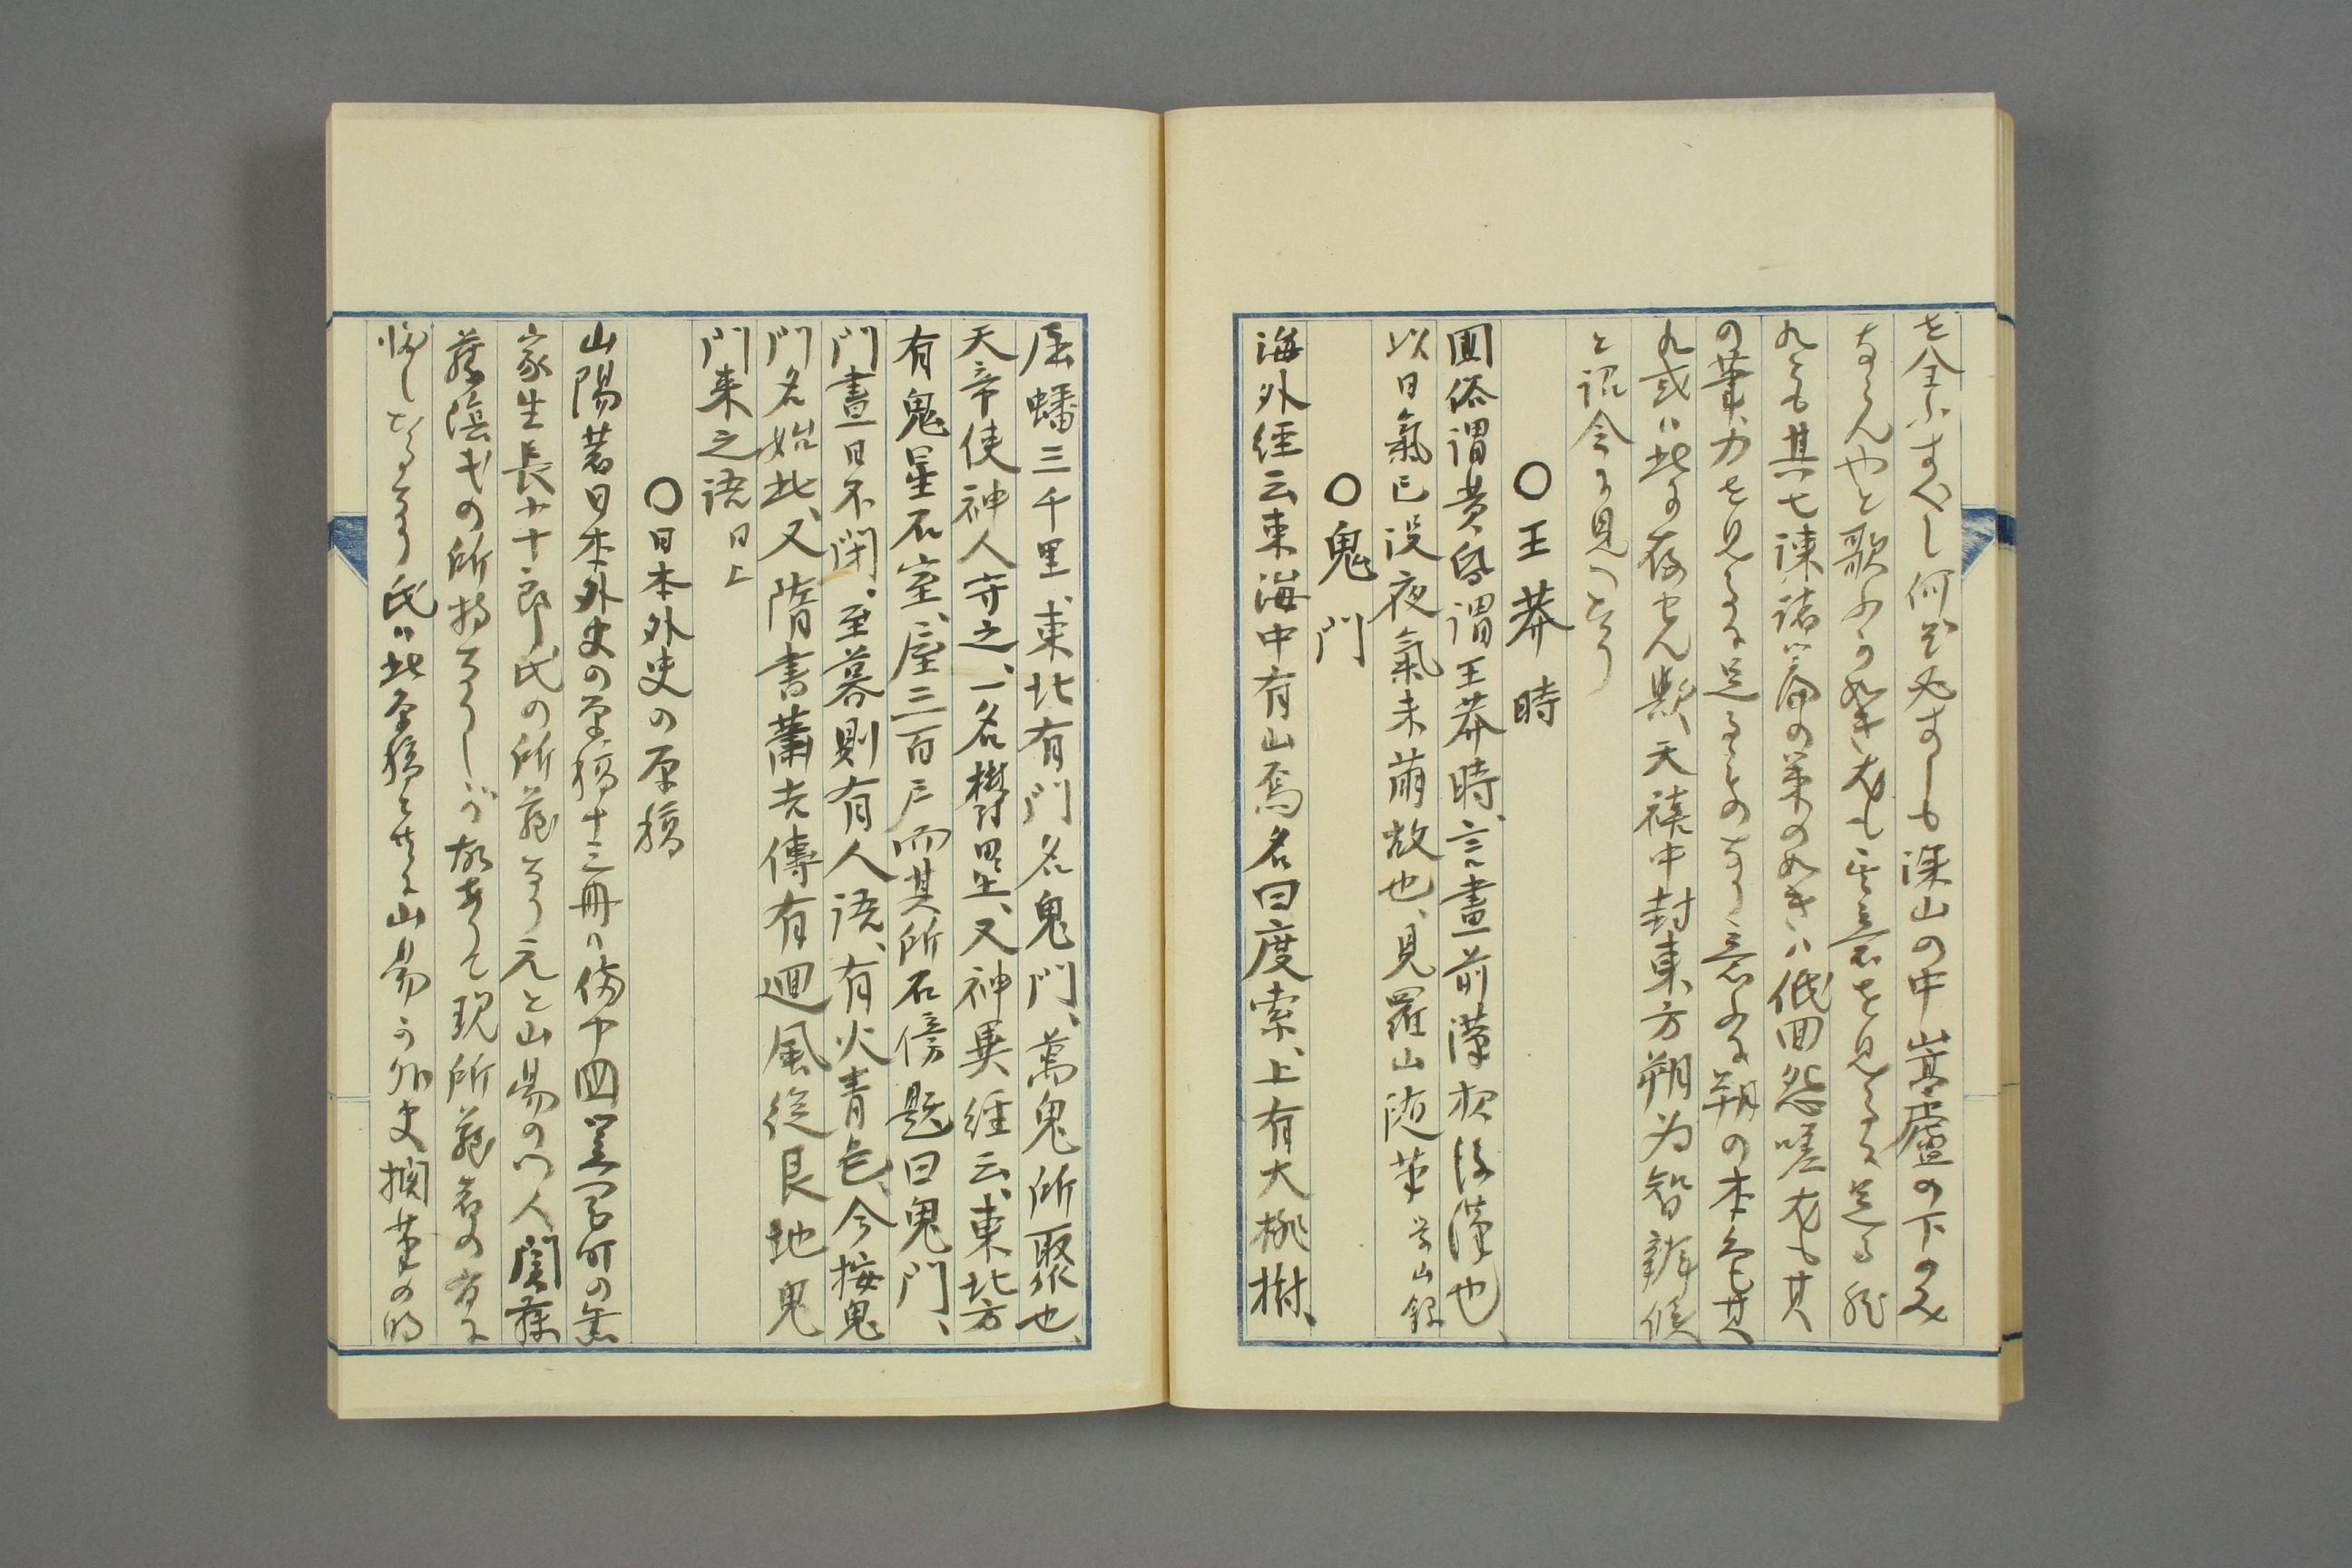 を全ふすべし何ぞ必すしも深山の中嵩廬の下のみ
ならんやと歌ふか如き尤も其意を見るに足る然
れとも其七諫諸篇の策の如きハ低回怨嗟尤も其
の筆力を見るに足るものなり意ふに朔の本色其
れ或ハ此に存せん歟、天禧中封東方朔为智辯侯
と説今に見へたり
〇王莽時
国俗謂黄昏謂王莽時、言晝前漢夜後漢也、
以日氣已没夜氣未萠故也、見羅山随筆
〇鬼門
海外経云東海中有山焉名曰度索、上有大桃樹、
屈蟠三千里、東北有門名鬼門、萬鬼所聚也、
天帝使神人守之、一名欝壘、又神異経云、東北方
有鬼星石室、屋三百戸而其所石傍題曰鬼門、
門晝日不閉、至暮則有人語、有火青色、今按鬼
門名始此、又隋書蕭吉傳有廻風従艮地鬼
門来之語 同上
〇日本外史の原稿
山陽著日本外史の原稿十三冊ハ備中国笠岡町の
家生長十郎氏の所蔵なり元と山陽の門人関藤
藤陰氏の所持なりしが故ありて現所蔵者の有に
帰したるなり氏ハ此原稿を山陽か外史擱筆の時